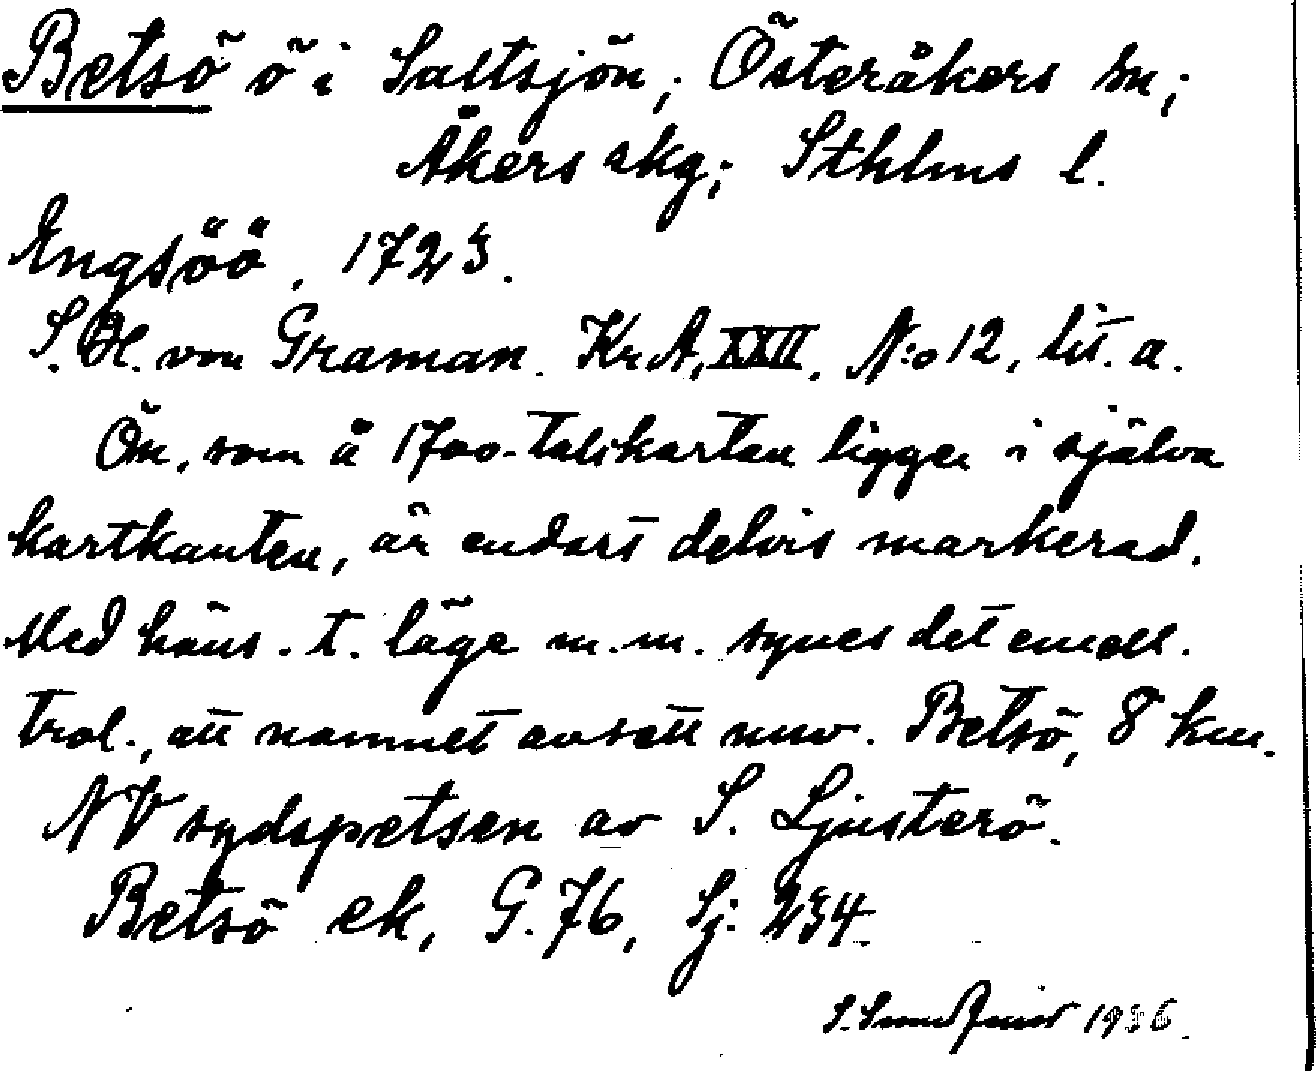 Betsö ö i Saltsjön; Österåkers sn;
Åkers skg; Sthlms l.
Engsöö. 1723.
S. H. von Graman. Kr A, XXII. N:o 12, lit. a.
Ön, som å 1700-talskartan ligger i själva
kartkanten, är endast delvis markerad.
Med häns. t. läge m.m. synes det emell.
trol., att namnet avsett nuv. Betsö, 8 km.
NV sydspetsen av S. Ljusterö.
Betsö ek, G. 76, Sj: 234.
1936.